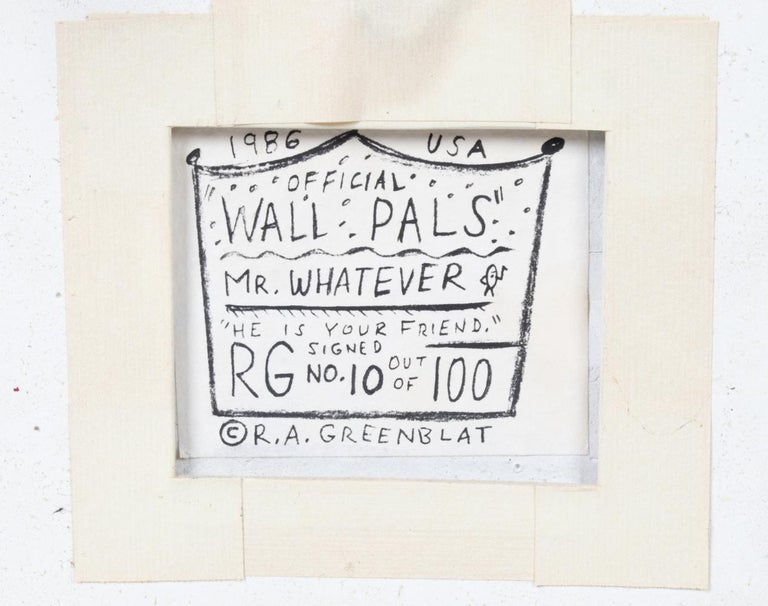 1986 USA
OFFICIAL
"WALL PALS"
MR. WHATEVER
"HE IS YOUR FRIEND."
RG SIGNED NO. 10 OUT OF 100
© R.A. GREENBLAT